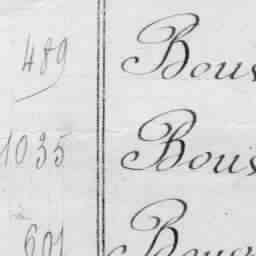 489 Bous
1035 Bous
601